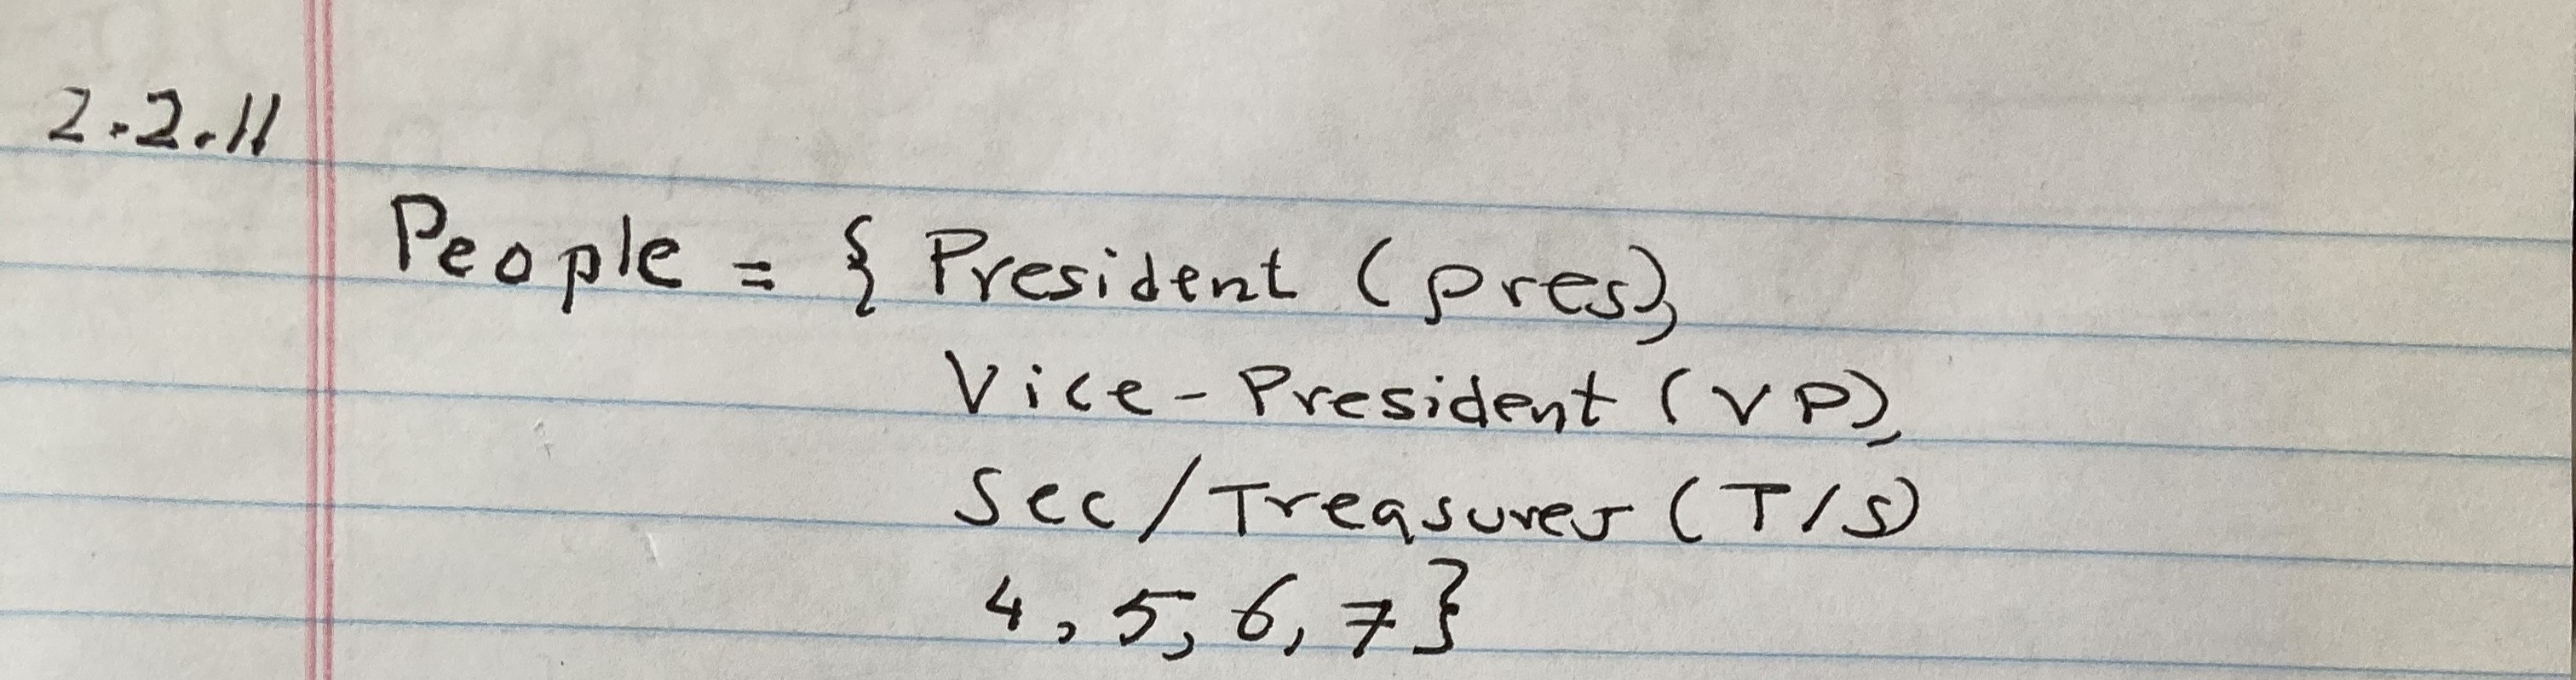 2.2.11
People = { President (pres),
Vice-President (VP),
Sec/Treasurer (T/S)
4, 5, 6, 7 }